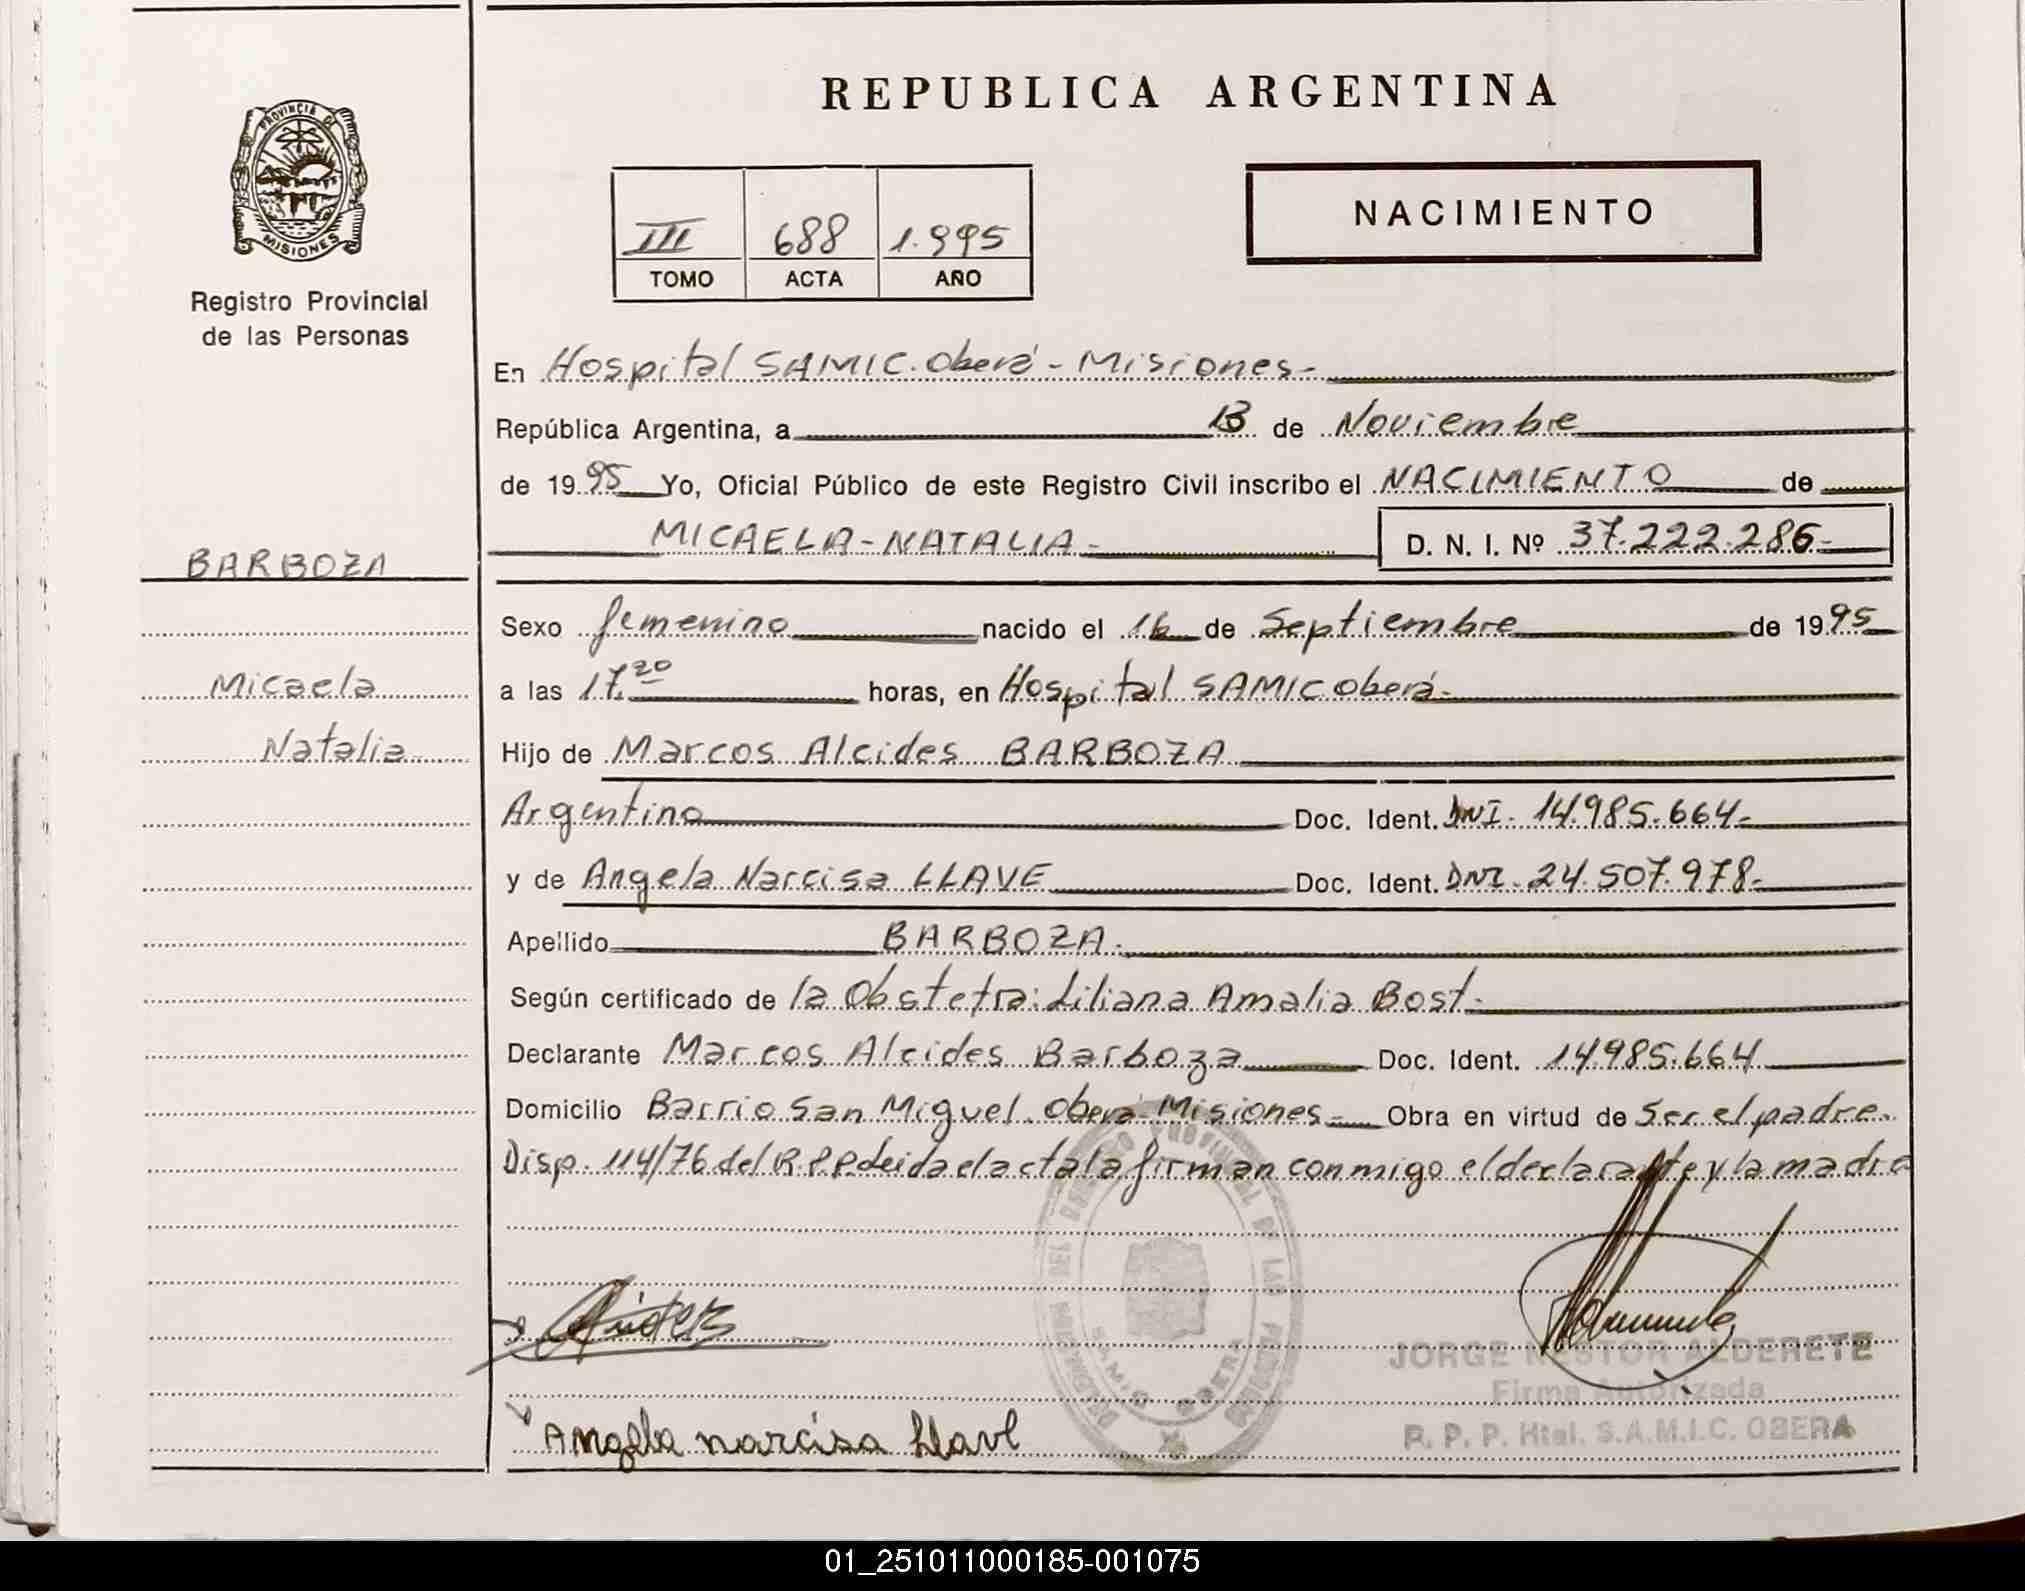 REPUBLICA ARGENTINA
PROVINCIA DE
MISIONES
Registro Provincial
de las Personas
III 688 1.995
TOMO ACTA AÑO
NACIMIENTO
En Hospital SAMIC. Oberá - Misiones-
República Argentina, a 13 de Noviembre
de 1995 Yo, Oficial Público de este Registro Civil inscribo el NACIMIENTO de
MICAELA-NATALIA- D. N. I. Nº 37.222.286-
BARBOZA
Micaela
Natalia
Sexo femenino nacido el 16 de Septiembre de 1995
a las 17.20 horas, en Hospital SAMIC Oberá-
Hijo de Marcos Alcides BARBOZA
Argentino Doc. Ident. DNI- 14.985.664-
y de Angela Narcisa LLAVE Doc. Ident. DNI- 24.507.978-
Apellido BARBOZA-
Según certificado de la Obstetra: Liliana Amalia Bost-
Declarante Marcos Alcides Barboza Doc. Ident. 14.985.664
Domicilio Barrio San Miguel. Oberá-Misiones- Obra en virtud de ser el padre.
Disp. 114/76 del R.P.P. Leida el acta la firman conmigo el declarante y la madre
JORGE NESTOR ALDERETE
Firma Autorizada
R. P. P. Htal. S.A.M.I.C. OBERA
Angela narcisa Llave
01_251011000185-001075